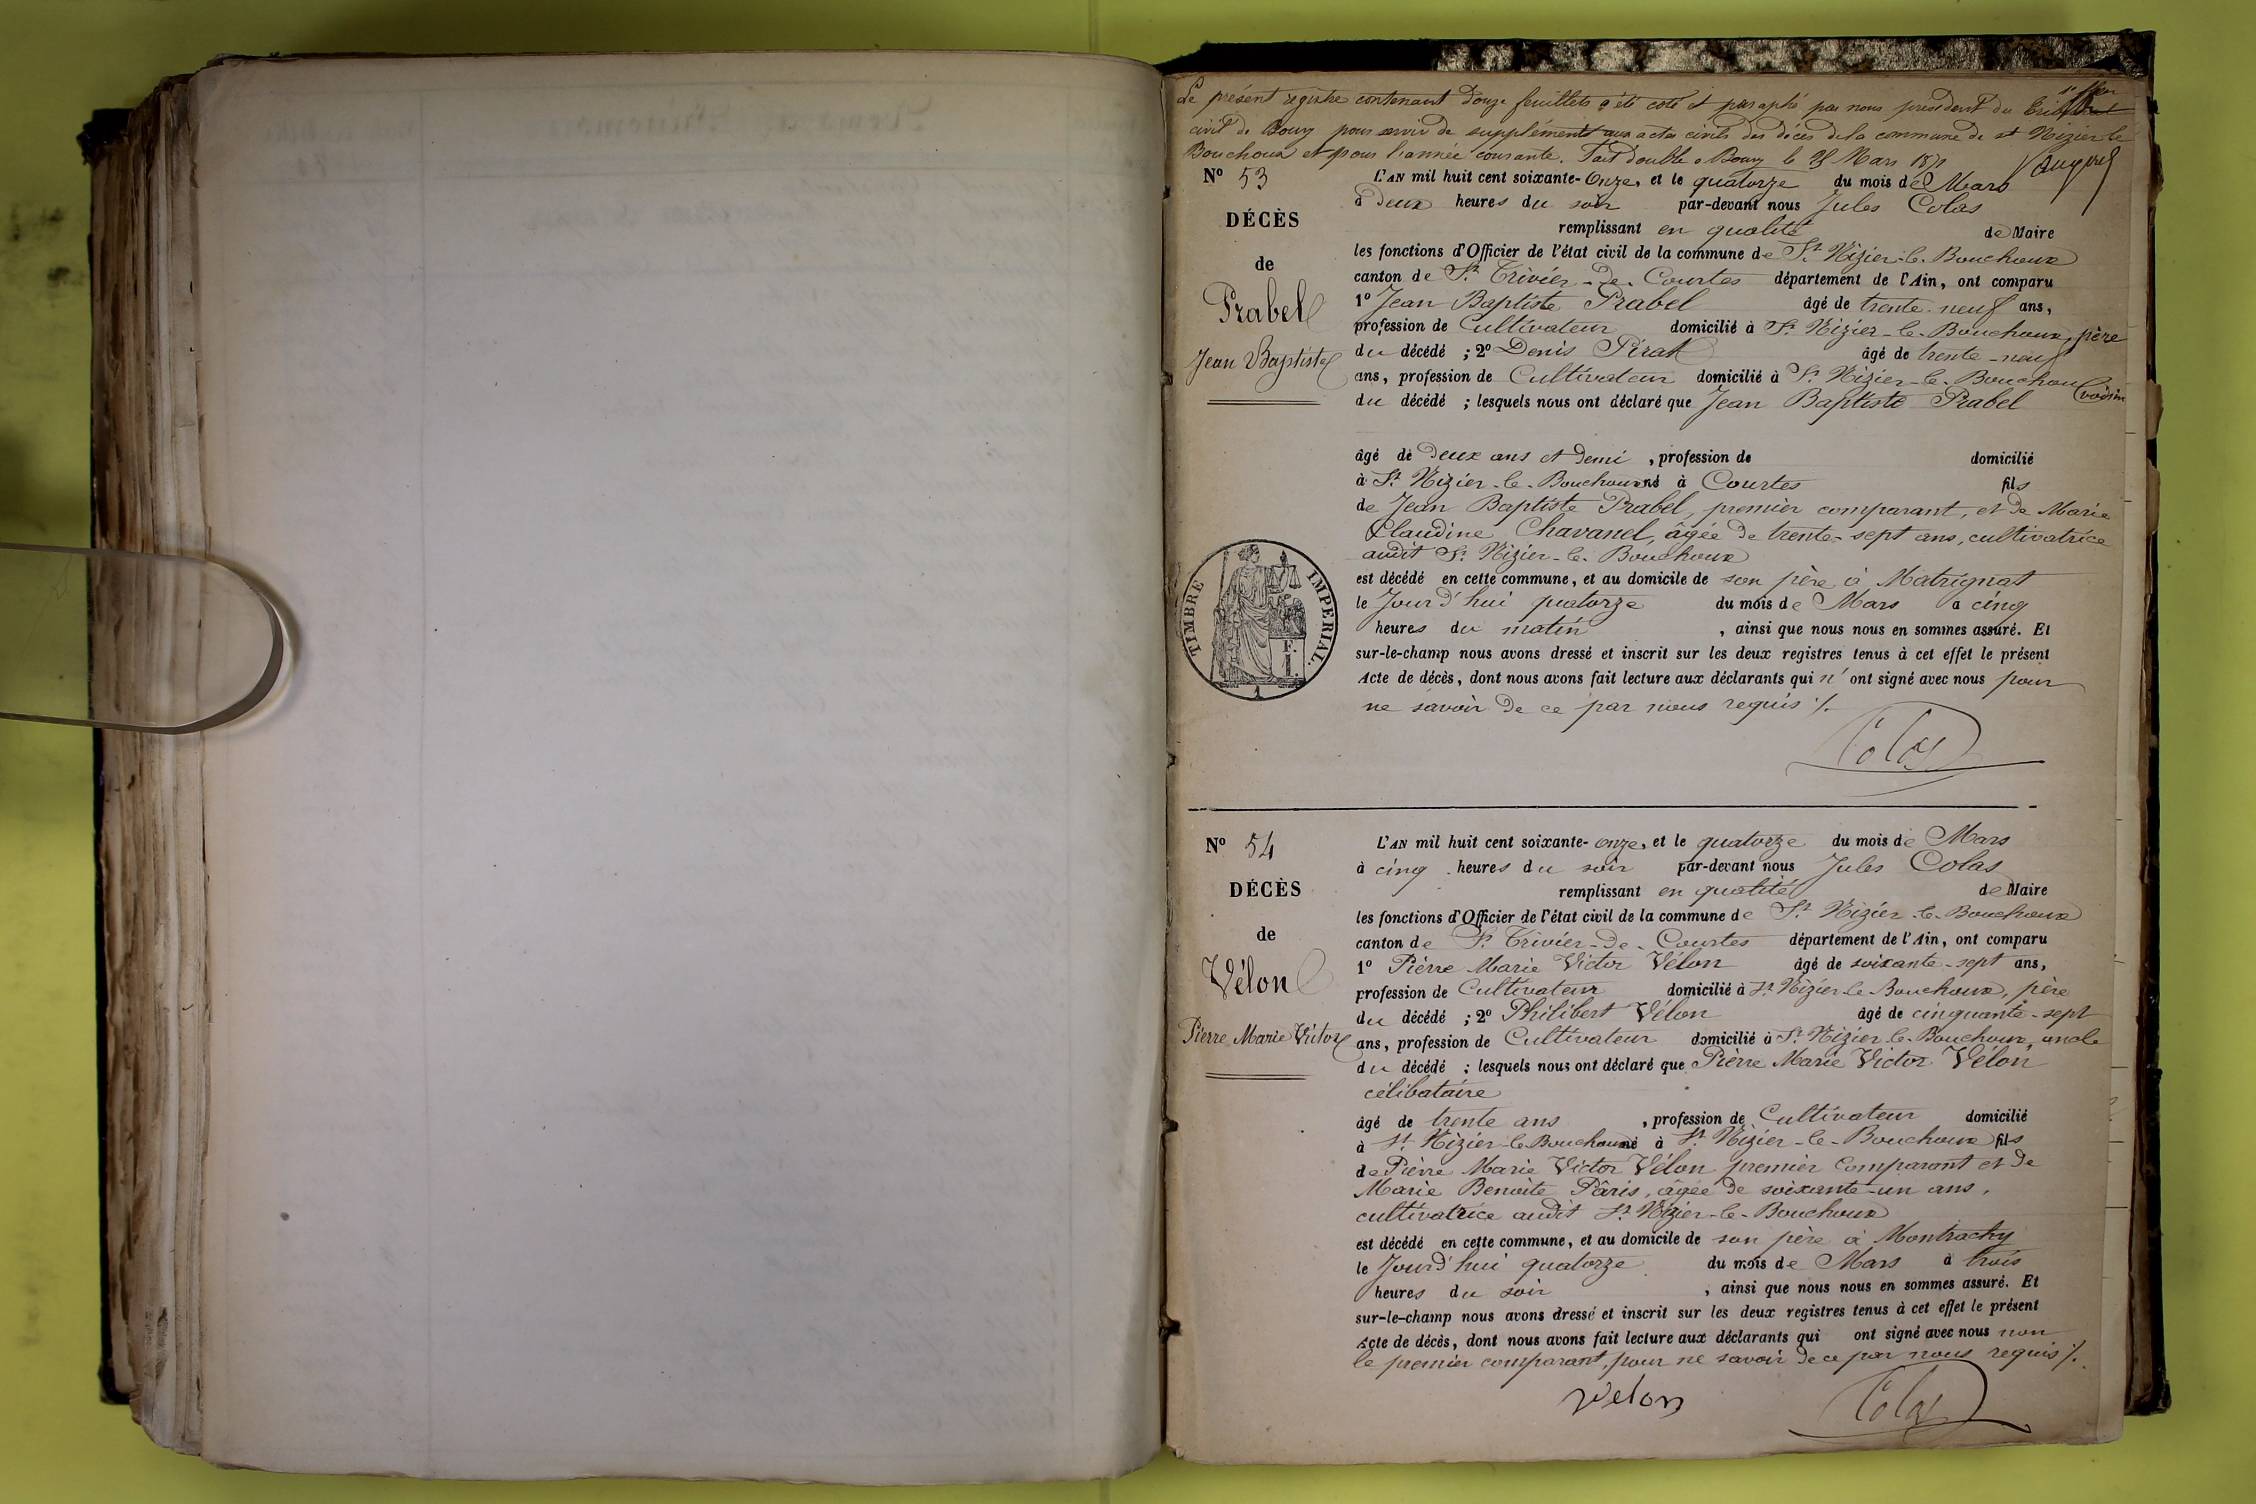 1er f
Le présent registre contenant douze feuillets a été coté et paraphé par nous président du tribunal
civil de Bourg pour servir de supplément aux actes civils des décès de la commune de st Nizier le
Bouchoux et pour l'année courante. Fait double à Bourg le Mars 1871
N° 53
DÉCÈS
de
Prabel
Jean Baptiste
TIMBRE IMPERIAL.
F.
I.
1
L'AN mil huit cent soixante-Onze, et le quatorze du mois de Mars
à Deux heures du soir par-devant nous Jules Colas
remplissant en qualité de Maire
les fonctions d'Officier de l'état civil de la commune de St Nizier-le-Bouchoux
canton de St Trivier-de-Courtes département de l'Ain, ont comparu
1° Jean Baptiste Prabel âgé de trente-neuf ans,
profession de Cultivateur domicilié à St Nizier-le-Bouchoux, père
du décédé ; 2° Denis Pirat âgé de trente-neuf
ans, profession de Cultivateur domicilié à St Nizier-le-Bouchoux voisin
du décédé ; lesquels nous ont déclaré que Jean Baptiste Prabel
âgé de Deux ans et demi , profession de domicilié
à St Nizier-le-Bouchoux né à Courtes fils
de Jean Baptiste Prabel, premier comparant, et de Marie
Claudine Chavanel, âgée de trente-sept ans, cultivatrice
audit St Nizier-le-Bouchoux
est décédé en cette commune, et au domicile de son père à Matrignat
le Jourd'hui quatorze du mois de Mars à cinq
heures du matin , ainsi que nous nous en sommes assuré. Et
sur-le-champ nous avons dressé et inscrit sur les deux registres tenus à cet effet le présent
Acte de décès, dont nous avons fait lecture aux déclarants qui n'ont signé avec nous pour
ne savoir de ce par nous requis ./.
Colas
N° 54
DÉCÈS
de
Vélon
Pierre Marie Victor
L'AN mil huit cent soixante-onze, et le quatorze du mois de Mars
à cinq heures du soir par-devant nous Jules Colas
remplissant en qualité de Maire
les fonctions d'Officier de l'état civil de la commune de St Nizier-le-Bouchoux
canton de St Trivier-de-Courtes département de l'Ain, ont comparu
1° Pierre Marie Victor Vélon âgé de soixante-sept ans,
profession de Cultivateur domicilié à St Nizier-le-Bouchoux, père
du décédé ; 2° Philibert Vélon âgé de cinquante-sept
ans, profession de Cultivateur domicilié à St Nizier-le-Bouchoux, oncle
du décédé ; lesquels nous ont déclaré que Pierre Marie Victor Vélon
célibataire
âgé de trente ans , profession de Cultivateur domicilié
à St Nizier-le-Bouchoux né à St Nizier-le-Bouchoux fils
de Pierre Marie Victor Vélon premier comparant et de
Marie Benoite Pâris, âgée de soixante-un ans,
cultivatrice audit St Nizier-le-Bouchoux
est décédé en cette commune, et au domicile de son père à Montrachy
le Jourd'hui quatorze du mois de Mars à trois
heures du soir , ainsi que nous nous en sommes assuré. Et
sur-le-champ nous avons dressé et inscrit sur les deux registres tenus à cet effet le présent
Acte de décès, dont nous avons fait lecture aux déclarants qui ont signé avec nous non
le premier comparant, pour ne savoir de ce par nous requis ./.
Velon
Colas